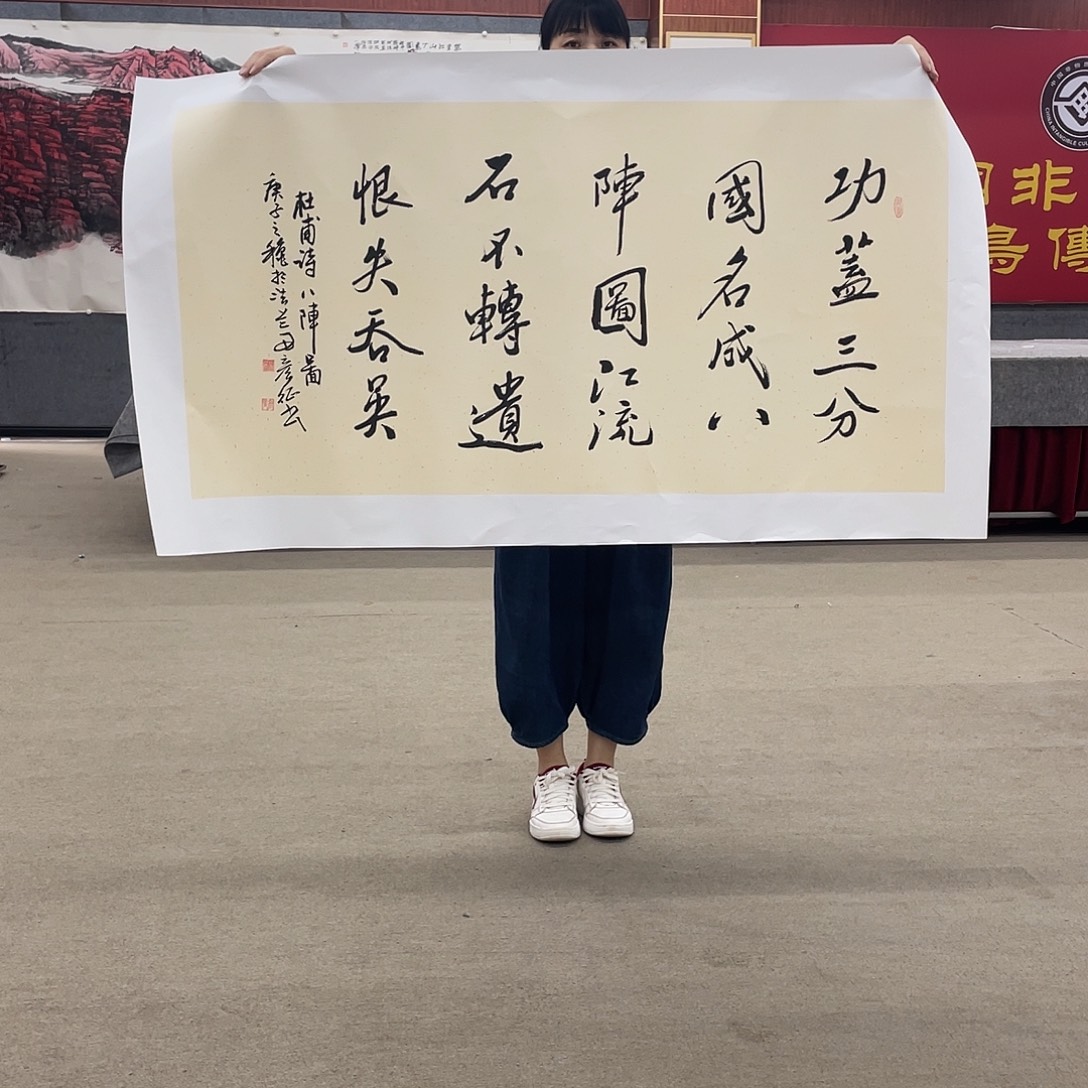 功蓋三分
國名成八
陣圖江流
石不轉遺
恨失吞吳
杜甫詩八陣圖
庚子之穐於浩
彦征书
非
傳
CHINA INTANGIBLE CUL